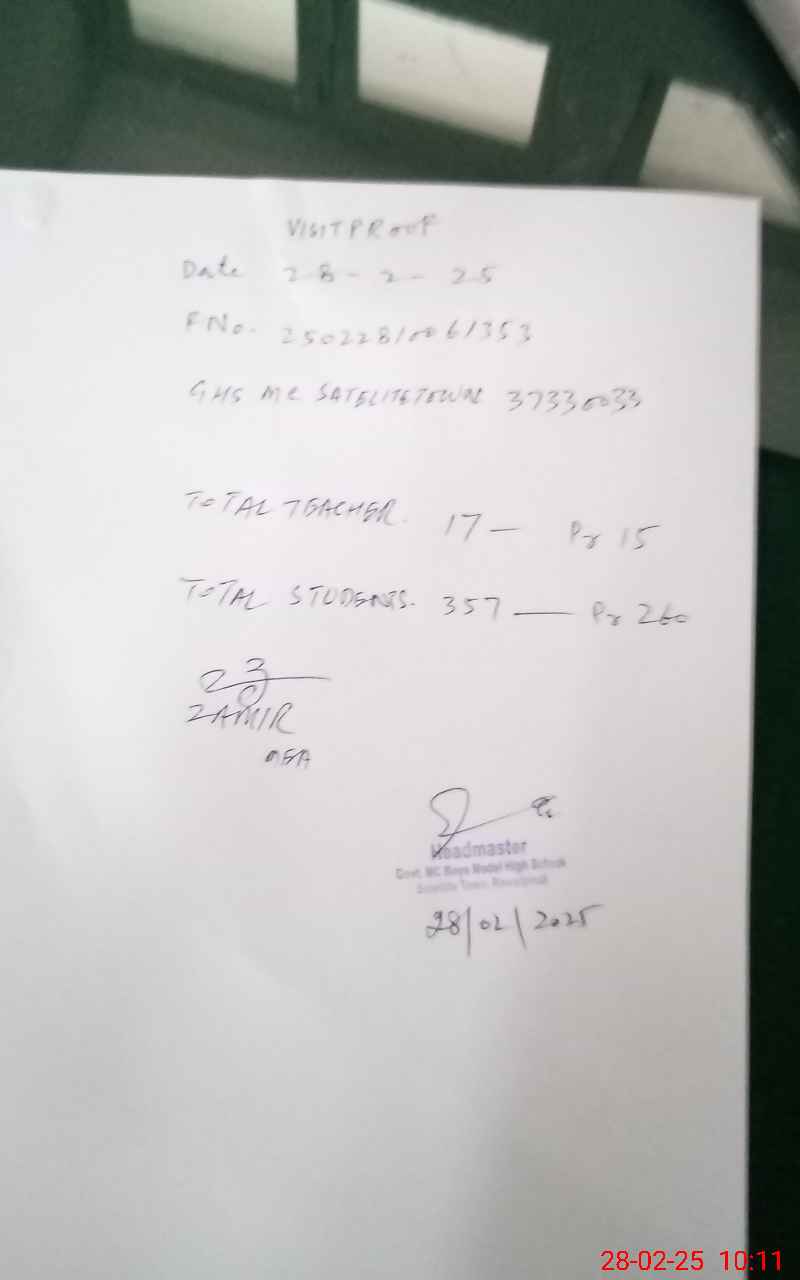 VISIT PROOF
Date 28-2-25
F.No. 25022810061353
GHS MC SATELITETOWN 37330033
TOTAL TEACHER. 17 — Pr 15
TOTAL STUDENTS. 357 — Pr 260
ZAMIR
MEA
Headmaster
Govt. MC Boys Model High School
Satellite Town Rawalpindi
28/02/2025
28-02-25 10:11